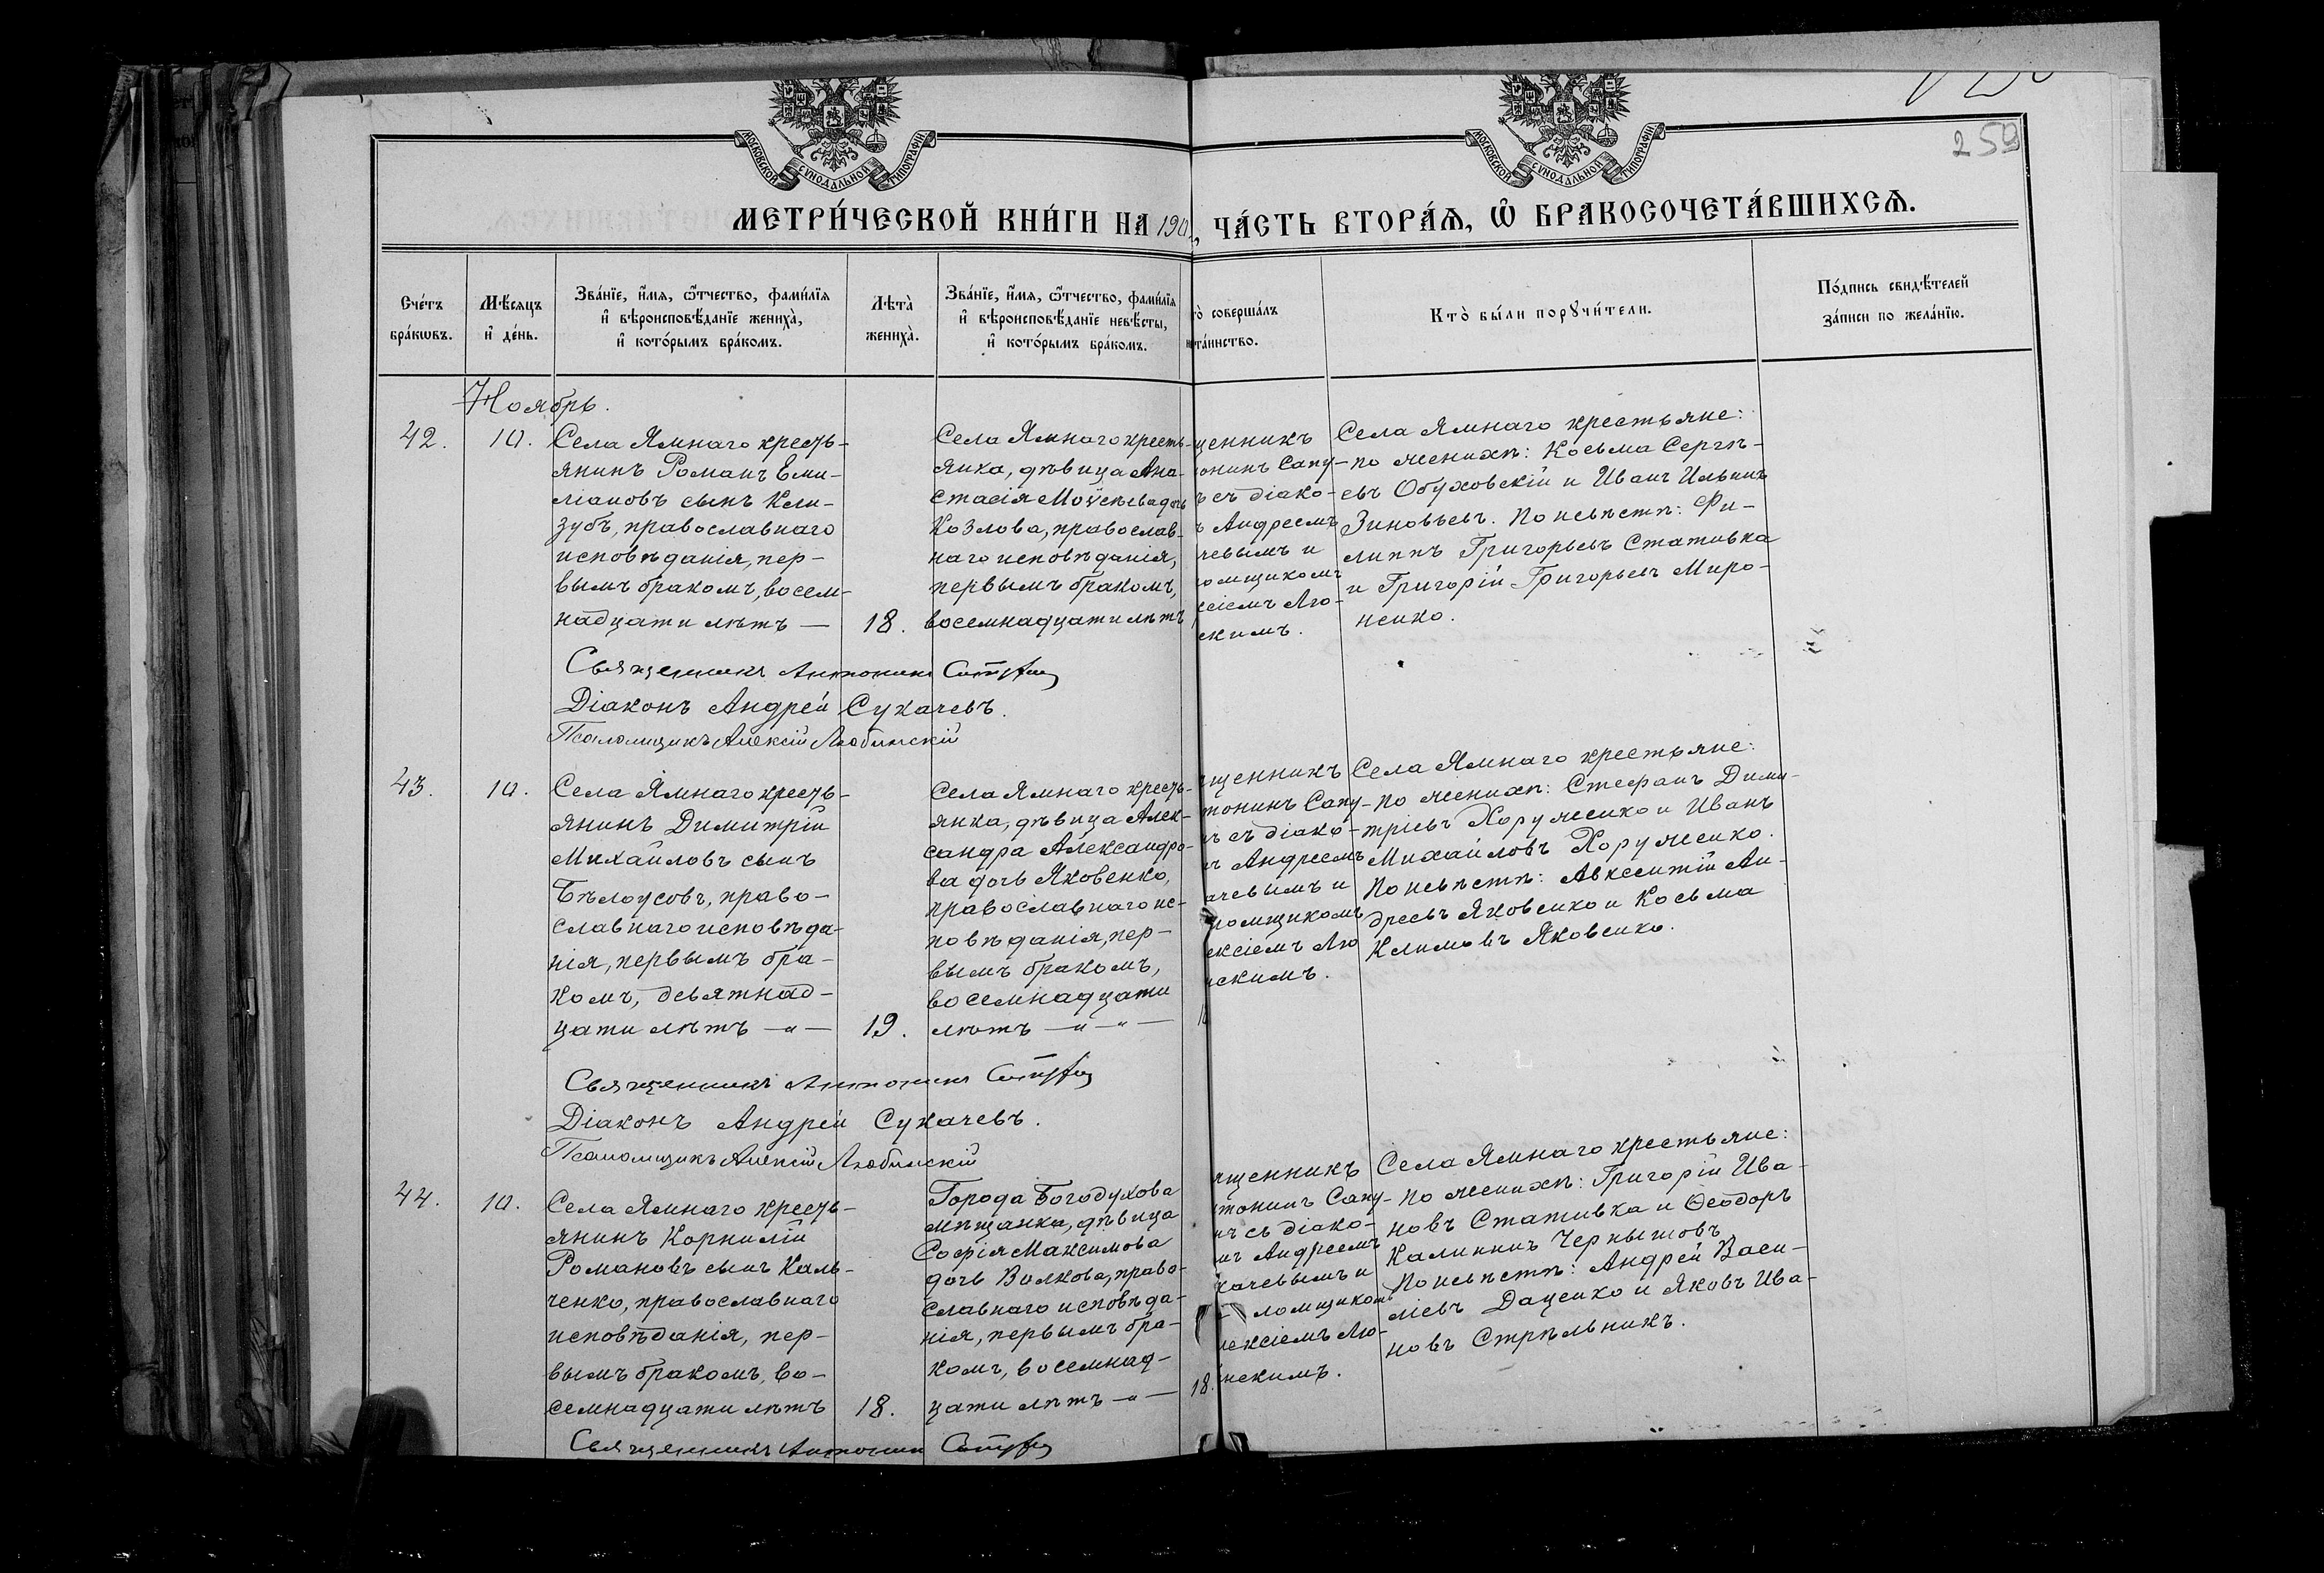 МОСКОВСКОЙ СѴНОДАЛЬНОЙ ТИПОГРАФІИ
МОСКОВСКОЙ СѴНОДАЛЬНОЙ ТИПОГРАФІИ
259
МЕТРИ́ЧЕСКОЙ КНИ́ГИ НА 190 , ЧА́СТЬ ВТОРА́Ѧ, Ѽ БРАКОСОЧЕТА́ВШИХСѦ.
Сче́тъ бра́кѡвъ.
Мѣ́сяцъ и҆ де́нь.
Зва́нїе, и҆́мя, ѻ҆́тчество, фами́лїя
и҆ вѣроисповѣ́данїе жениха̀,
и҆ кото́рымъ бра́комъ.
Лѣта̀ жениха̀.
Зва́нїе, и҆́мя, ѻ҆́тчество, фами́лїя
и҆ вѣроисповѣ́данїе невѣ́сты,
и҆ кото́рымъ бра́комъ.
то̀ соверша́лъ
та́инство.
Кто̀ бы́ли порꙋчи́тели.
По́дпись свидѣ́телей
за́писи по жела́нїю.
Ноябрь.
42.
10.
Села Ямнаго кресть-
янинъ Романъ Еми-
ліановъ сынъ Кли-
зубъ, православнаго
исповѣданія, пер-
вымъ бракомъ, восем-
надцати лѣтъ —
18.
Села Ямнаго кресть-
янка, дѣвица Ана-
стасія Моѵсеева дочь
Козлова, православ-
наго исповѣданія,
первымъ бракомъ,
восемнадцати лѣтъ
щенникъ
онинъ Сапу-
ъ съ діако-
ъ Андреемъ
чевымъ и
омщикомъ
сіемъ Лю-
скимъ.
Села Ямнаго крестьяне:
по женихѣ: Косьма Сергѣ-
евъ Обуховскій и Иванъ Ильинъ
Зиновьевъ. По невѣстѣ: Фи-
липпъ Григорьевъ Стативка
и Григорій Григорьевъ Миро-
ненко.
Священникъ Антонинъ
Діаконъ Андрей Сухачевъ.
Псаломщикъ Алексій Любинскій
43.
10.
Села Ямнаго кресть-
янинъ Димитрій
Михайловъ сынъ
Бѣлоусовъ, право-
славнаго исповѣда-
нія, первымъ бра-
комъ, девятнад-
цати лѣтъ —"—
19.
Села Ямнаго кресть-
янка, дѣвица Алек-
сандра Александро-
ва дочь Яковенко,
православнаго ис-
повѣданія, пер-
вымъ бракомъ,
восемнадцати
лѣтъ —"—"—
щенникъ
тонинъ Сапу-
ъ съ діако-
ъ Андреемъ
ачевымъ и
ломщикомъ
ексіемъ Лю
нскимъ.
Села Ямнаго крестьяне:
по женихѣ: Стефанъ Дими-
тріевъ Хоруженко и Иванъ
Михайловъ Хоруженко.
По невѣстѣ: Авксентій Ан-
дреевъ Яковенко и Косьма
Климовъ Яковенко.
Священникъ Антонинъ
Діаконъ Андрей Сухачевъ.
Псаломщикъ Алексій Любинскій
44.
10.
Села Ямнаго кресть-
янинъ Корнилій
Романовъ сынъ Каль-
ченко, православнаго
исповѣданія, пер-
вымъ бракомъ, во-
семнадцати лѣтъ
18.
Города Богодухова
мѣщанка, дѣвица
Софія Максимова
дочь Волкова, право-
славнаго исповѣда-
нія, первымъ бра-
комъ, восемнад-
цати лѣтъ —"—
18.
щенникъ
тонинъ Сапу-
нъ съ діако-
мъ Андреемъ
хачевымъ и
ломщикомъ
лексіемъ Лю-
нскимъ.
Села Ямнаго крестьяне:
по женихѣ: Григорій Ива-
новъ Стативка и Ѳеодоръ
Калининъ Чернышовъ
По невѣстѣ: Андрей Васи-
ліевъ Даценко и Яковъ Ива-
новъ Стрѣльникъ.
Священникъ Антонинъ